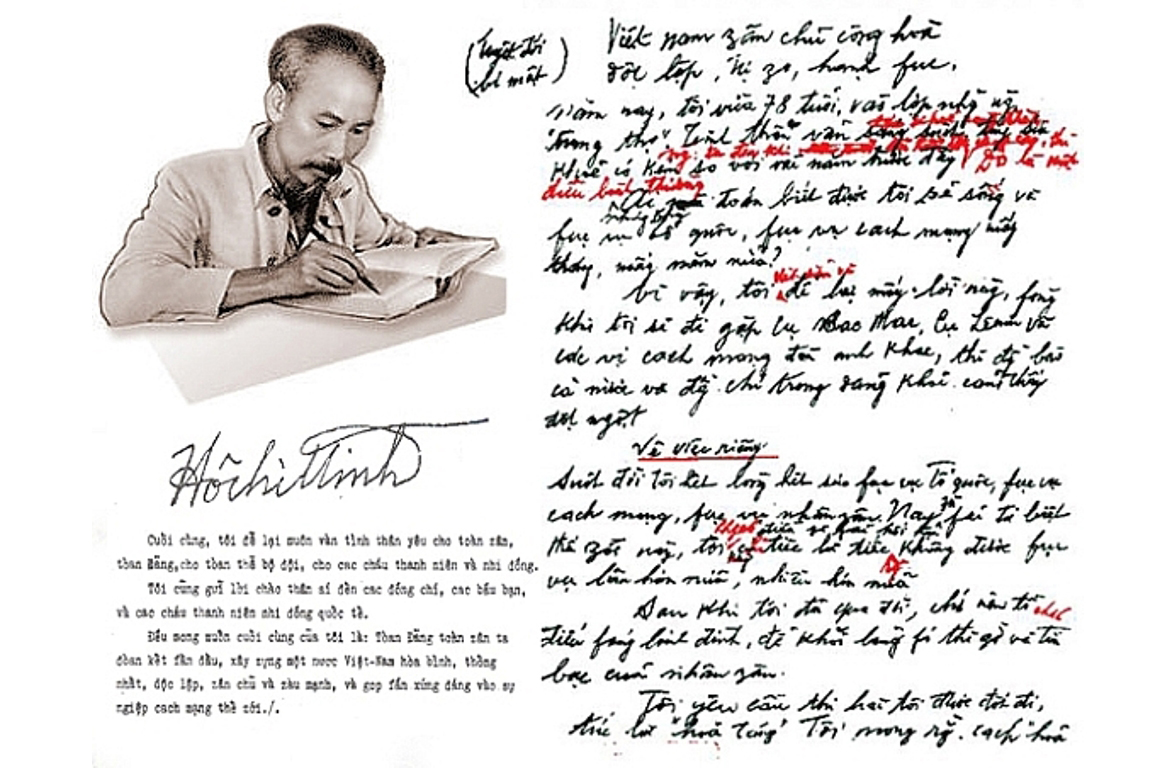 Hồ Chí Minh
Cuối cùng, tôi để lại muôn vàn tình thân yêu cho toàn zân,
toàn Đảng, cho toàn thể bộ đội, cho các cháu thanh niên và nhi đồng.
Tôi cũng gửi lời chào thân ái đến các đồng chí, các bầu bạn,
và các cháu thanh niên nhi đồng quốc tế.
Điều mong muốn cuối cùng của tôi là: Toàn Đảng toàn zân ta
đoàn kết fấn đấu, xây zựng một nước Việt-Nam hòa bình, thống
nhất, độc lập, zân chủ và zàu mạnh, và góp fần xứng đáng vào sự
ngiệp cách mạng thế zới./.
(tuyệt đối
bí mật)
Việt nam zân chủ cộng hoà
độc lập, tự zo, hạnh fúc.
Năm nay, tôi vừa 78 tuổi, vào lớp những
"trung thọ". Tinh thần vẫn sáng suốt, tuy sức
khoẻ có kém so với vài năm trước đây. Đó là một
điều bình thường
Ai mà đoán biết được tôi sẽ sống và
fục vụ tổ quốc, fục vụ cách mạng mấy
tháng, mấy năm nữa?
Vì vậy, tôi để lại mấy lời này, fòng
khi tôi sẽ đi gặp Cụ Các Mác, Cụ Lênin và
các vị cách mạng đàn anh khác, thì đồng bào
cả nước và đồng chí trong đảng khỏi cảm thấy
đột ngột
Về việc riêng
Suốt đời tôi hết lòng hết sức fục vụ Tổ quốc, fục vụ
cách mạng, fục vụ nhân zân. Nay zù fải từ biệt
thế zới này, tôi tiếc là tiếc không được fục
vụ lâu hơn nữa, nhiều hơn nữa
Sau khi tôi đã qua đời, chớ nên tổ chức
điếu fúng linh đình, để khỏi lãng fí thì zờ và tiền
bạc của nhân zân.
Tôi yêu cầu thi hài tôi được đốt đi,
tức là "hoả táng" Tôi mong rằng cách "hoả